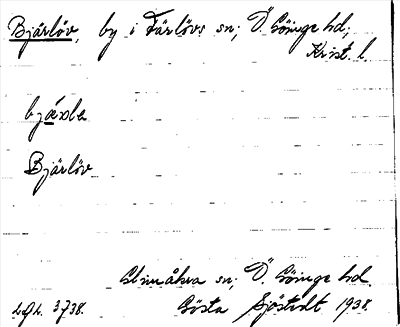 Bjärlöv, by i Färlövs sn; Ö. Göinge hd,
Krist. l.
Bjärlöv
Glimåkra sn; Ö. Göinge hd.
Gösta Sjöstedt 1938.